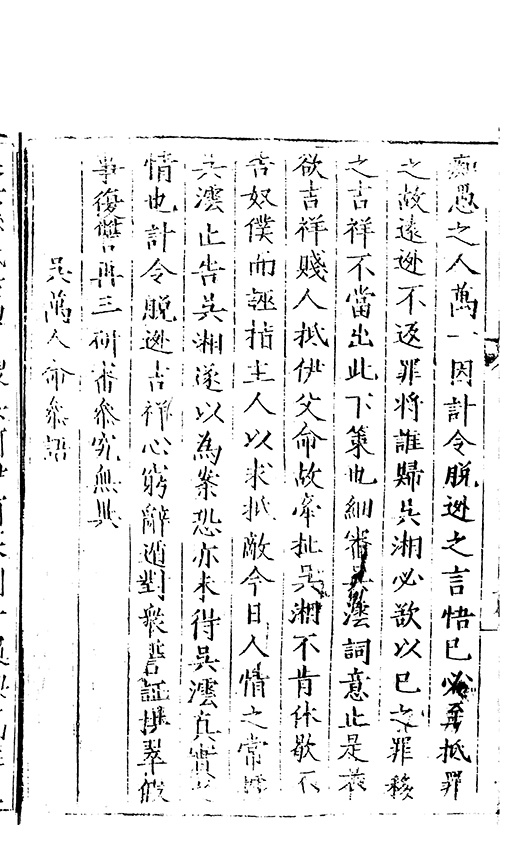 愚之人萬一因計令脫逃之言悟已必至抵罪
之故遠逃不返罪將誰歸吳湘必欲以已之罪移
之吉祥不當出此下策也細審吳澐詞意止是
欲吉祥賤人抵伊父命故牽扯吳湘不肯休歇不
告奴僕而誣指主人以求抵敵今日人情之常
吳澐止告吳湘遂以為案恐亦未得吳澐真實
情也計令脫逃吉祥心窮辭遁對衆證撰單假
事復讐再三研審參究無異
吳萬人命參語